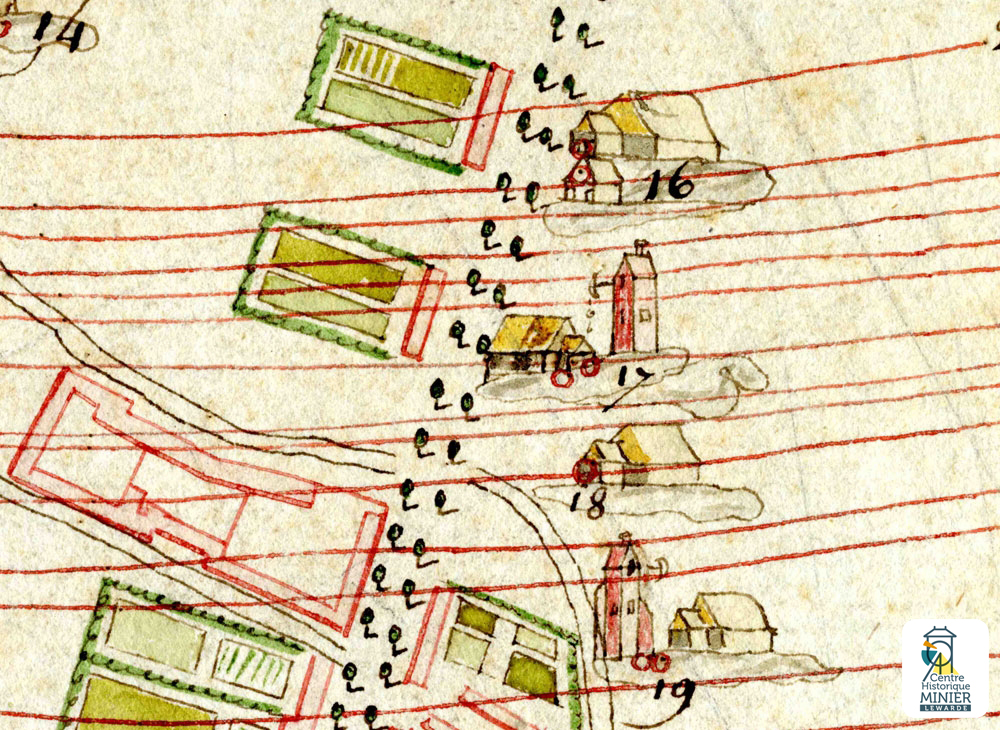 14
16
17
18
19
Centre
Historique
MINIER
LEWARDE